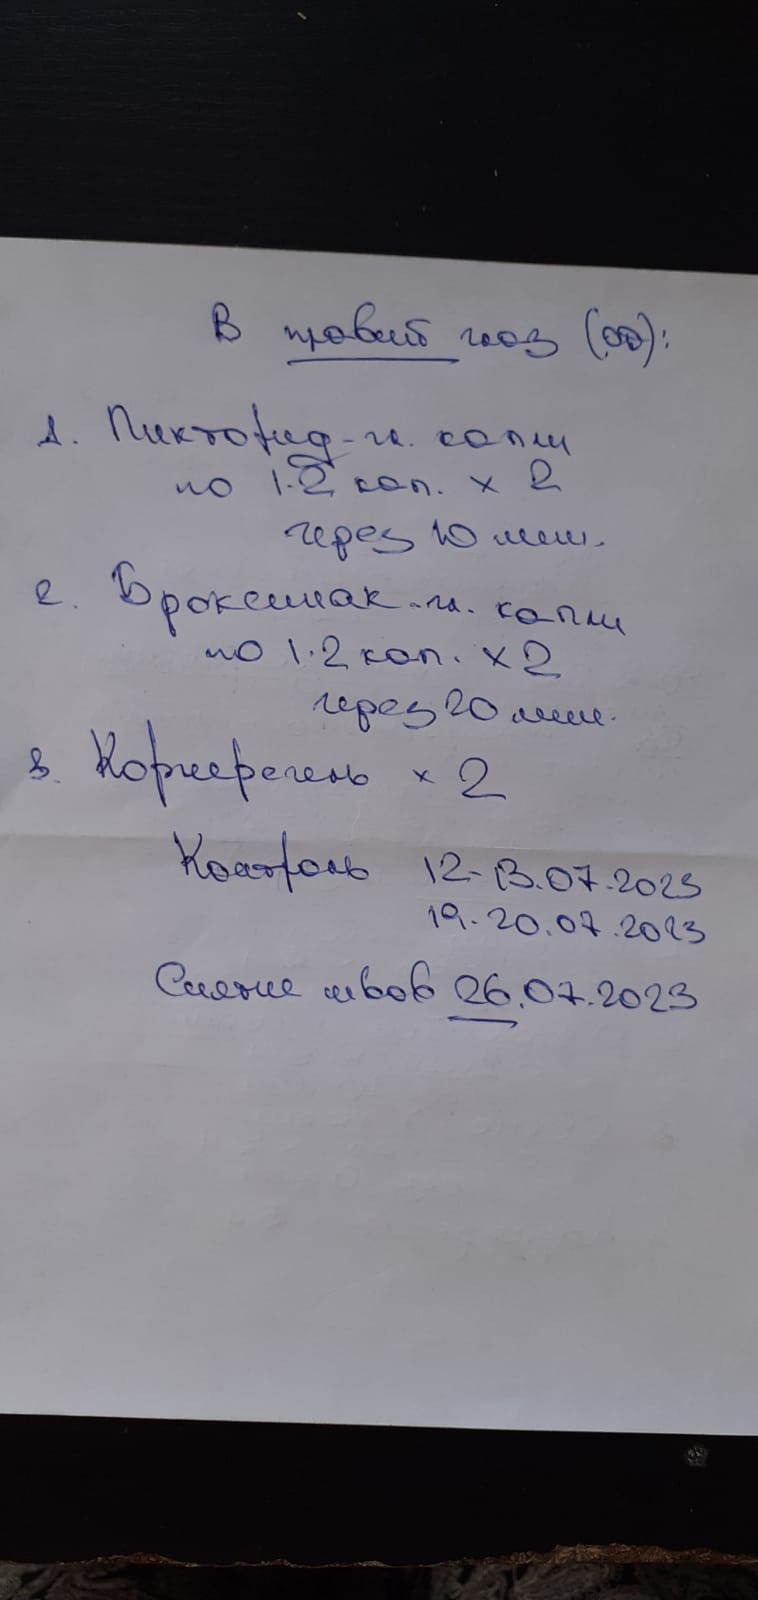 В правый глаз (OD):
1. Пиктофид-гл. капли
по 1-2 кап. х 2
через 10 мин.
2. Броксинак-гл. капли
по 1-2 кап. х 2
через 20 мин.
3. Корнерегель х 2
Контроль 12-13.07.2023
19-20.07.2023
Снятие швов 26.07.2023